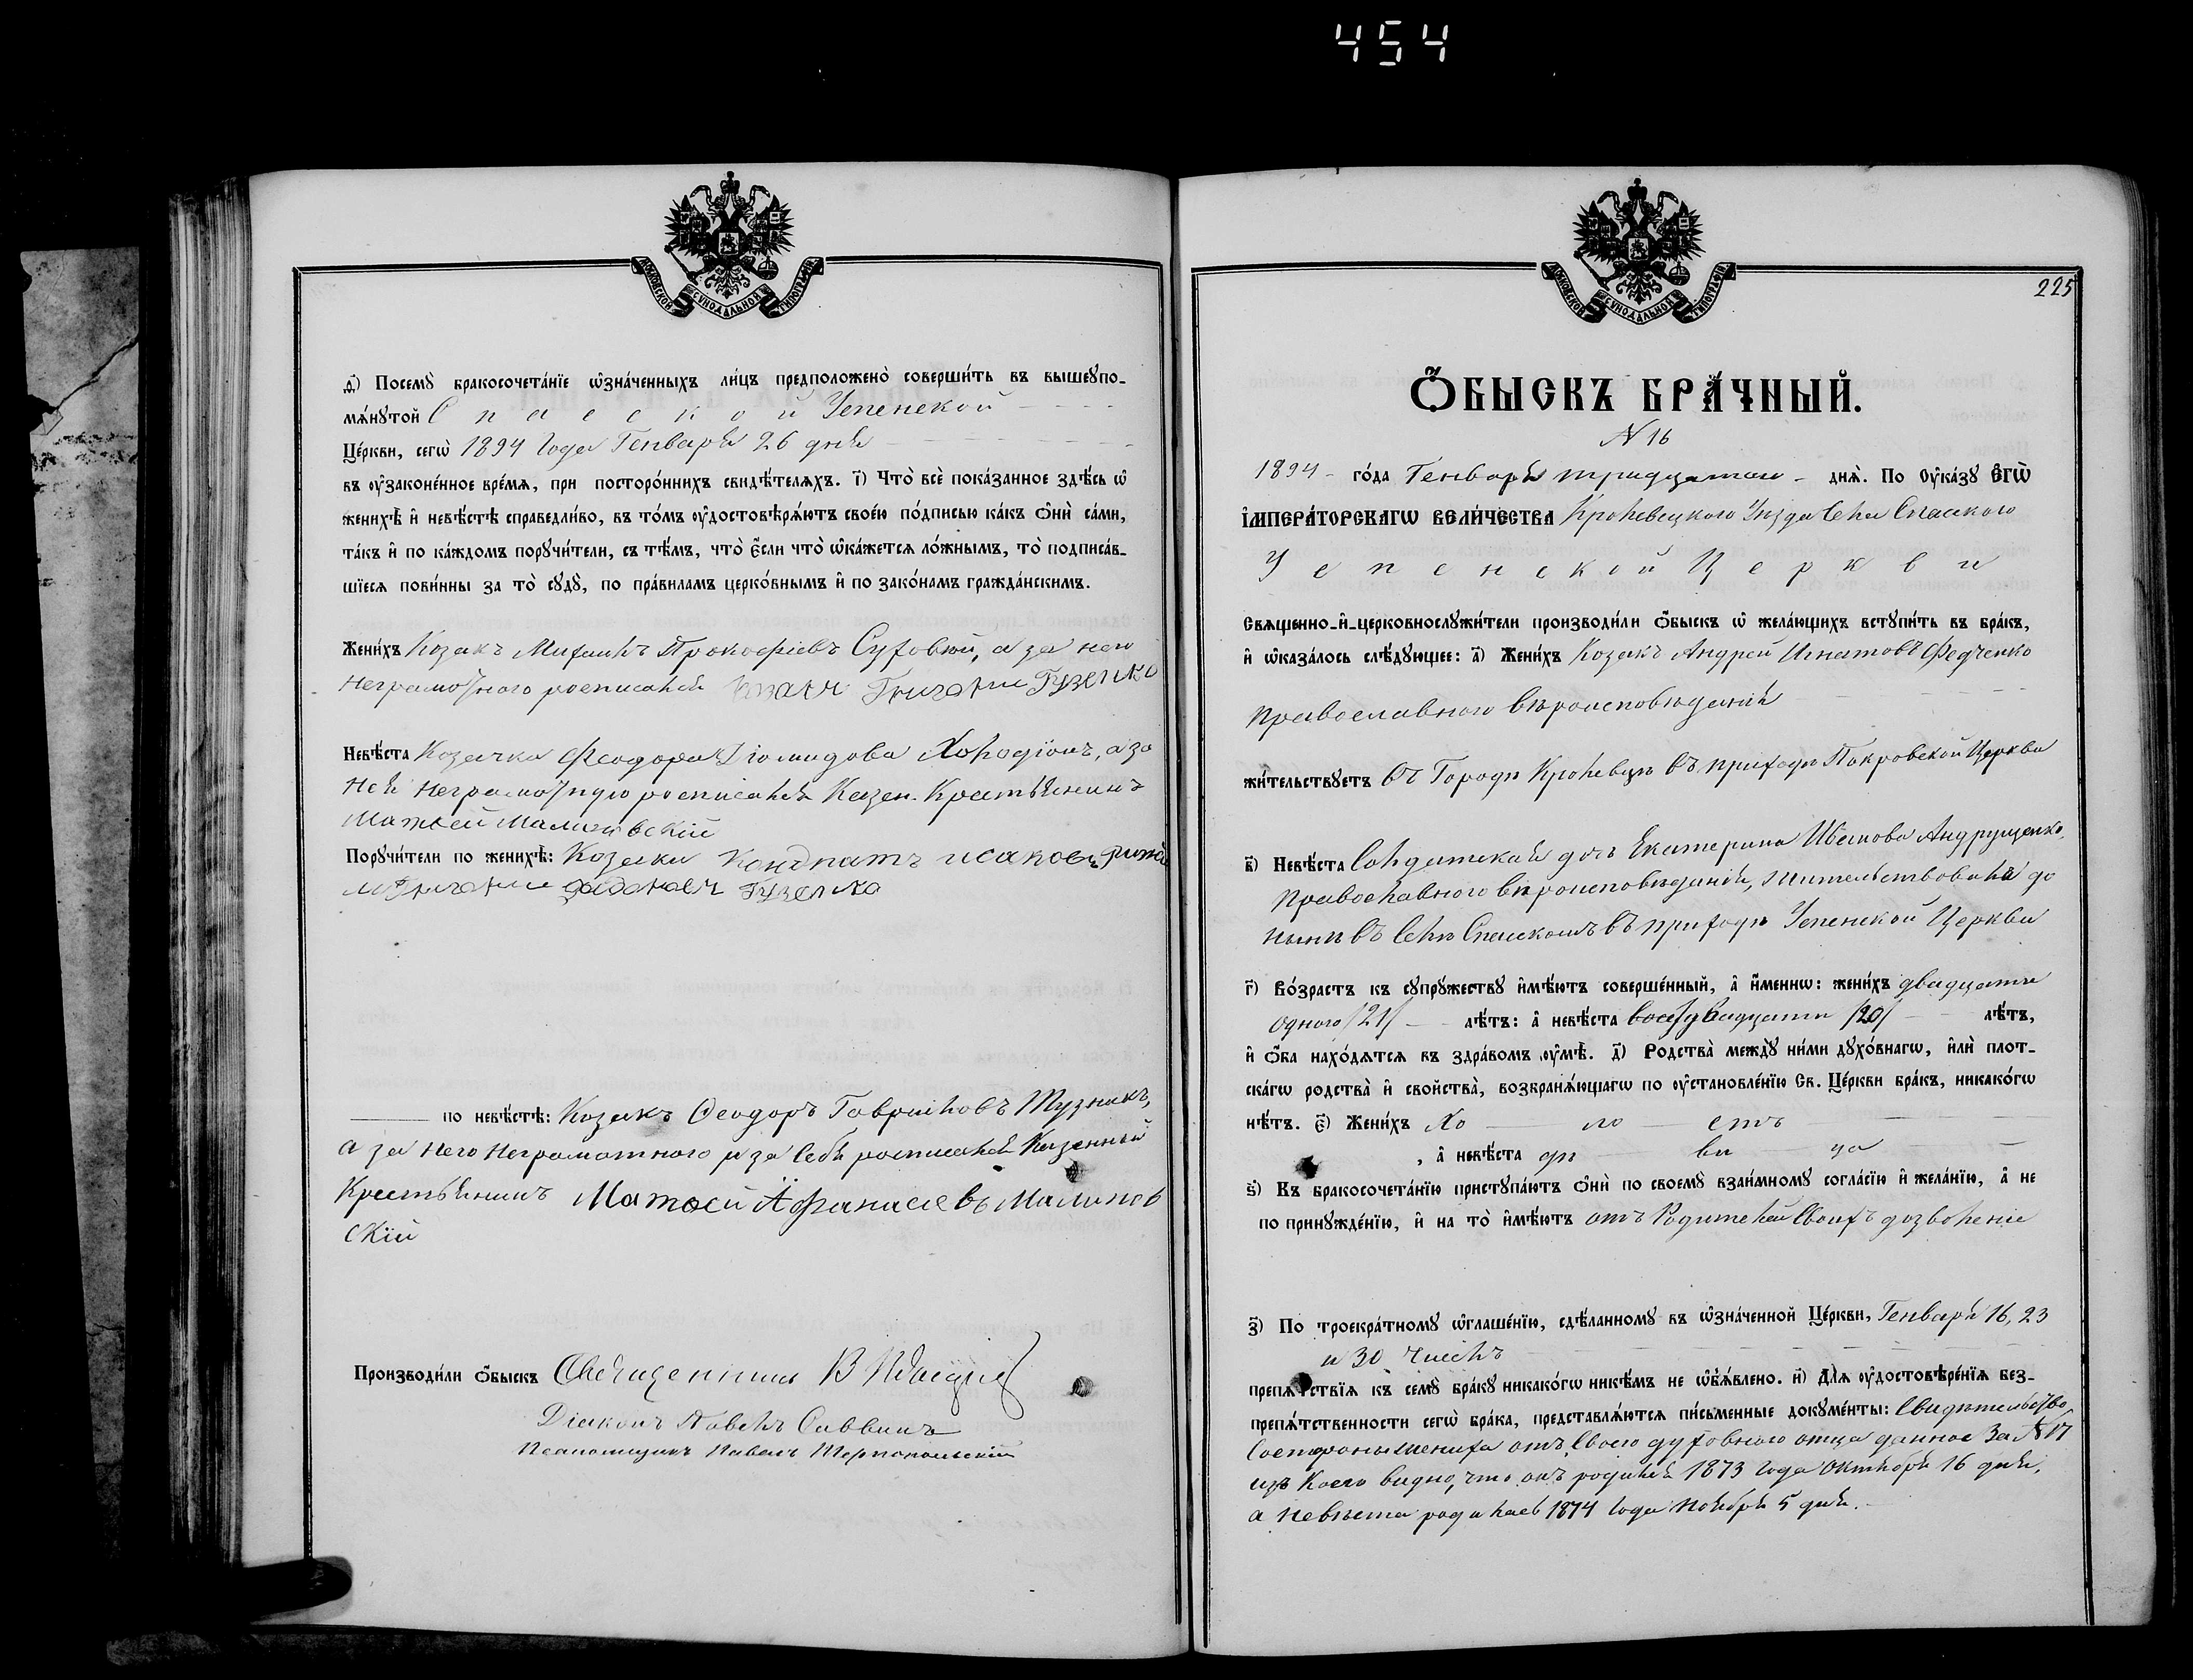 454
МОСКОВСКОЙ СУНОДАЛЬНОЙ ТИПОГРАФІИ
д҃і) Посемꙋ̀ бракосочета́нїе ѡ҆зна́ченныхъ ли́цъ предположено̀ соверши́ть въ вышеꙋпо-
мѧ́нꙋтой Спасской Успенской
Це́ркви, сегѡ̀ 1894 Года Генваря 26 дня
въ ᲂу҆законе́нное вре́мѧ, при посторо́ннихъ свидѣ́телѧхъ. і҃) Что̀ всѐ пока́занное здѣ́сь ѡ҆
женихѣ̀ и҆ невѣ́стѣ справедли́во, въ то́мъ ᲂу҆достовѣрѧ́ютъ свое́ю по́дписью ка́къ ѻ҆нѝ са́ми,
та́къ и҆ по ка́ждомъ порꙋчи́тели, съ тѣ́мъ, что̀ є҆́сли что̀ ѡ҆ка́жетсѧ ло́жнымъ, то̀ подписа́в-
шїесѧ пови́нны за то̀ сꙋдꙋ̀, по пра́виламъ церко́внымъ и҆ по зако́намъ гражда́нскимъ.
Жени́хъ Козакъ Михаилъ Прокофіевъ Суховій, а за него
неграмотнаго росписался Козакъ Григорій Гузенко
Невѣ́ста Козачка Феодора Діомидова, а за
ней неграмотную росписался Казен. Крестьянинъ
Матвей Малиновскій
Порꙋчи́тели по женихѣ̀: Козаки Кондратъ исаковъ
Григорий Гузенко
по невѣ́стѣ: Козакъ Феодоръ Гавриловъ Музыка,
а за него неграмотного и за себя росписался Казенный
Крестьянинъ Матвей Афанасиевъ Малинов
скій
Производи́ли ѻ҆́быскъ Священникъ В
Діаконъ Павелъ Саввинъ
Псаломщикъ Павелъ Тернопольскій
МОСКОВСКОЙ СУНОДАЛЬНОЙ ТИПОГРАФІИ
225
Ѻ҆́БЫСКЪ БРА́ЧНЫЙ.
№ 16
1894 го́да Генваря тридцатаго днѧ̀. По ᲂу҆ка́зꙋ Є҆ГѠ̀
І҆МПЕРА́ТОРСКАГѠ ВЕЛИ́ЧЕСТВА Кролевецкого Уѣзда Села Спаского
Успенской Церкви
Свѧще́нно-и҆-церковнослꙋжи́тели производи́ли ѻ҆́быскъ ѡ҆ жела́ющихъ встꙋпи́ть въ бра́къ,
и҆ ѡ҆каза́лось слѣ́дꙋющее: а҃) Жени́хъ Козакъ Андрей Игнатовъ Федченко
православного вѣроисповѣданія
жи́тельствꙋетъ въ Городѣ Кролевцѣ въ приходѣ Покровской Церкви
в҃) Невѣ́ста Солдатская дочь Екатерина Иванова Андрущенко,
Православного вѣроисповѣданія, жительствовала до
нынѣ въ Селѣ Спаскомъ въ приходѣ Успенской Церкви
г҃) Во́зрастъ къ сꙋпрꙋ́жествꙋ и҆мѣ́ютъ соверше́нный, а҆ и҆́меннѡ: жени́хъ двадцати
одного /21/ лѣ́тъ: а҆ невѣ́ста двадцати /20/ лѣ́тъ,
и҆ ѻ҆́ба нахо́дѧтсѧ въ здра́вомъ ᲂу҆мѣ̀. д҃) Родства̀ междꙋ̀ ни́ми дꙋхо́внагѡ, и҆лѝ плот-
ска́гѡ родства̀ и҆ сво́йства̀, возбранѧ́ющагѡ по ᲂу҆становле́нїю Св. Це́ркви бра́къ, никако́гѡ
нѣ́тъ. є҃) Жени́хъ Хо ло стъ
, а҆ невѣ́ста дѣ ви ца
ѕ҃) Къ бракосочета́нїю пристꙋпа́ютъ ѻ҆нѝ по своемꙋ̀ взаи́мномꙋ согла́сїю и҆ жела́нїю, а҆ не
по принꙋжде́нїю, и҆ на то̀ и҆мѣ́ютъ отъ Родителей своихъ дозволеніе
з҃) По троекра́тномꙋ ѡ҆глаше́нїю, сдѣ́ланномꙋ въ ѡ҆зна́ченной Це́ркви, Генваря 16, 23
и 30 числъ
препѧ́тствїѧ къ семꙋ̀ бра́кꙋ никако́гѡ никѣ́мъ не ѡ҆б̾ѧ́влено. и҃) Длѧ̀ ᲂу҆достовѣре́нїѧ без-
препѧ́тственности сегѡ̀ бра́ка, представлѧ́ютсѧ пи́сьменные докꙋме́нты: Свидѣтельство
состороны жениха отъ своего духовного отца данное За № 17
изъ коего видно, что онъ родился 1873 года Октября 16 дня,
а невѣста родилась 1874 Года Ноября 5 дня.